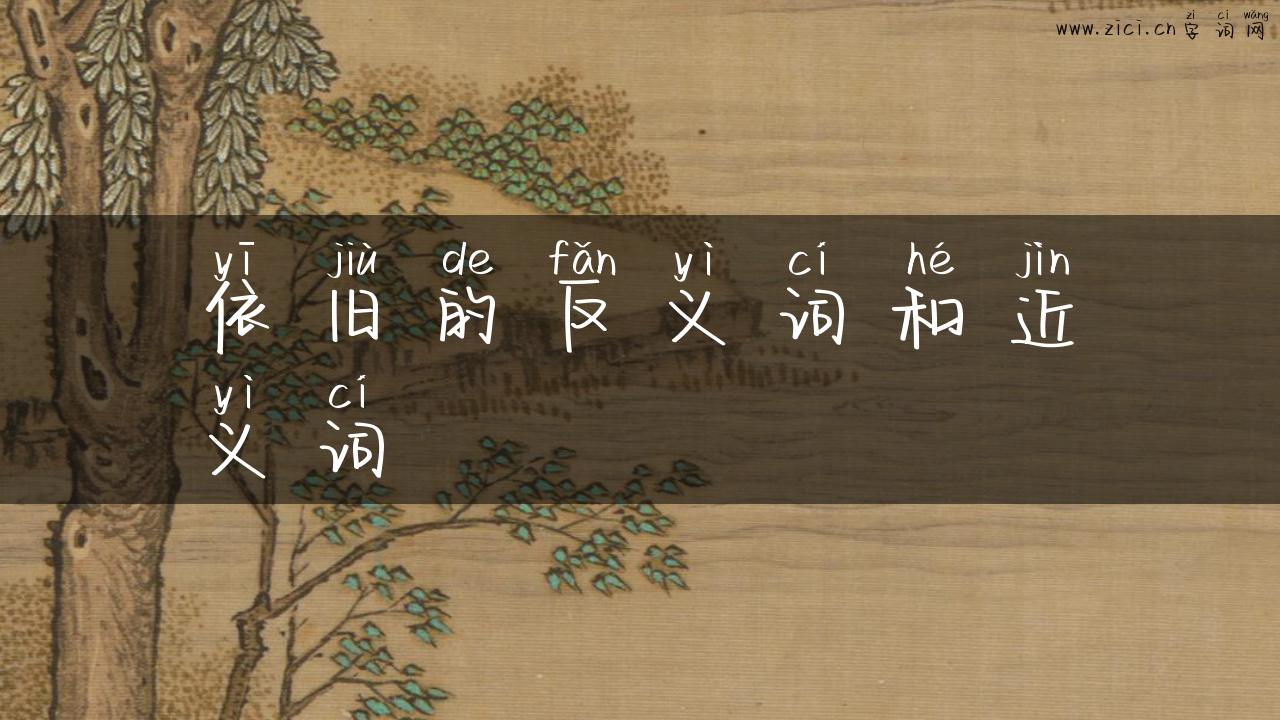 zì cí wǎng
www.zici.cn 字词网
yī jiù de fǎn yì cí hé jìn
依旧的反义词和近
yì cí
义词